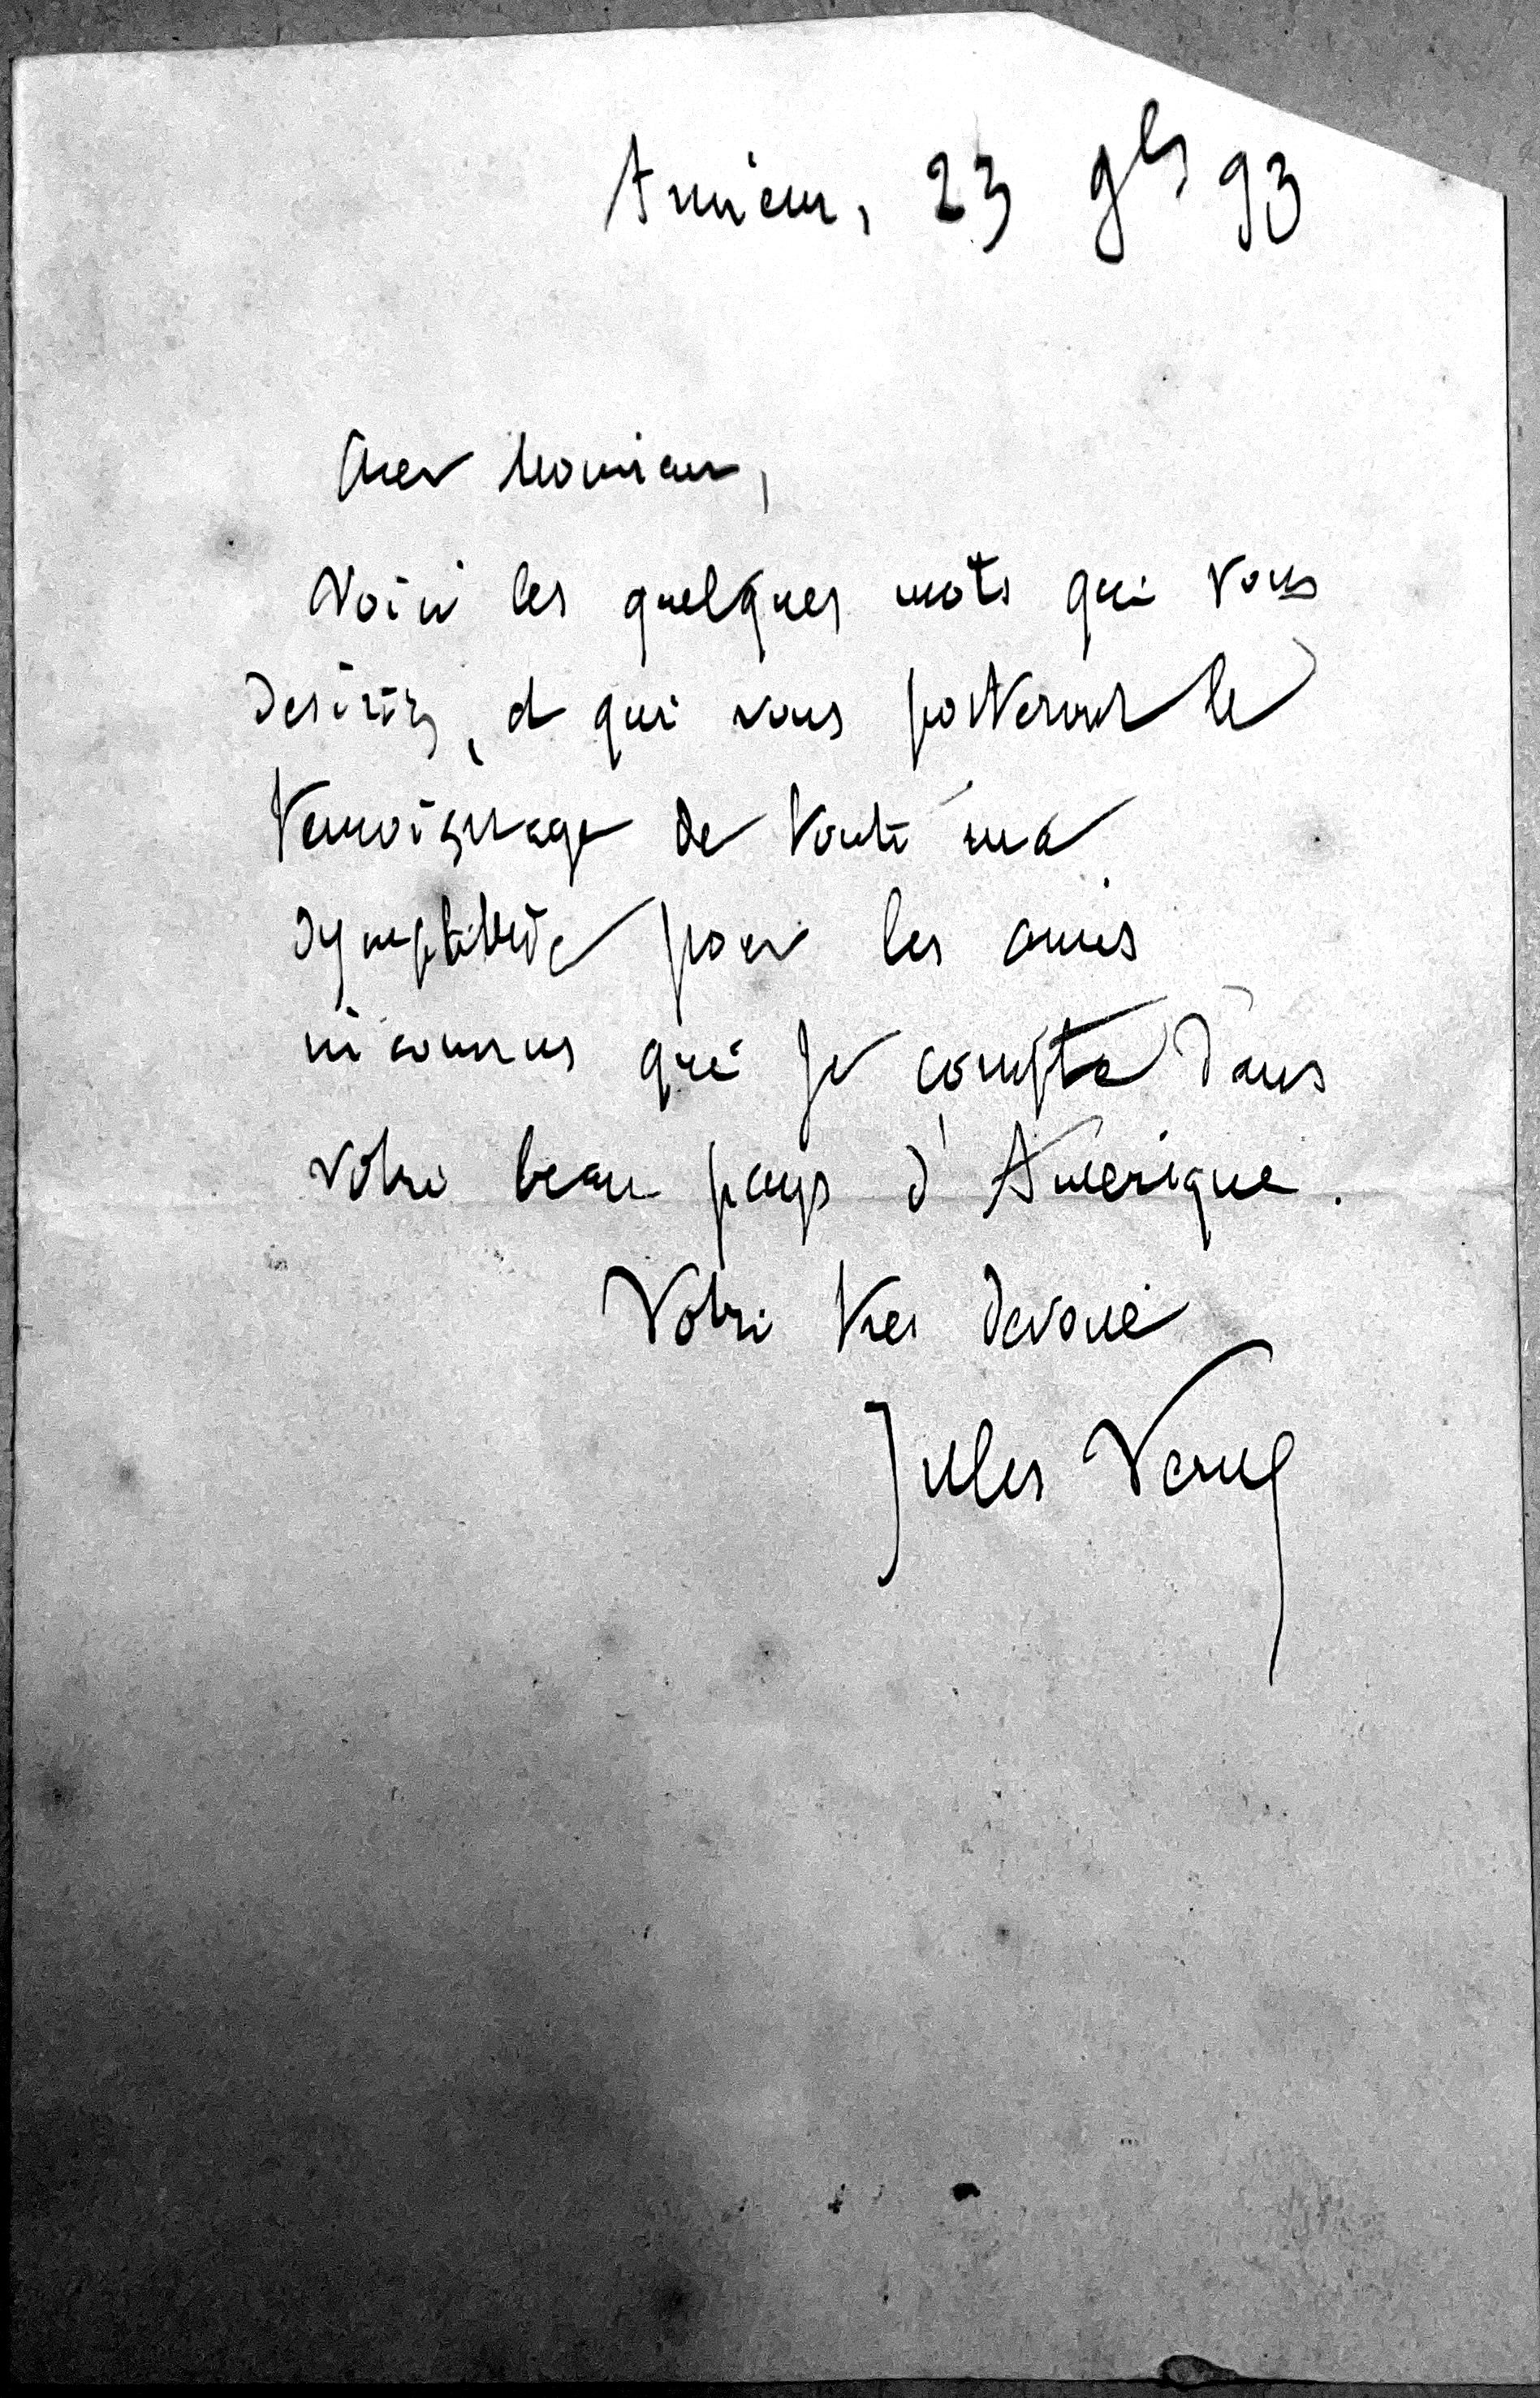 Amiens, 23 9bre 93
Cher Monsieur,
Voici les quelques mots que vous
desirez, et qui vous porteront le
temoignage de toute ma
sympathie pour les amis
inconnus que je compte dans
votre beau pays d'Amerique.
Votre tres devoué
Jules Verne